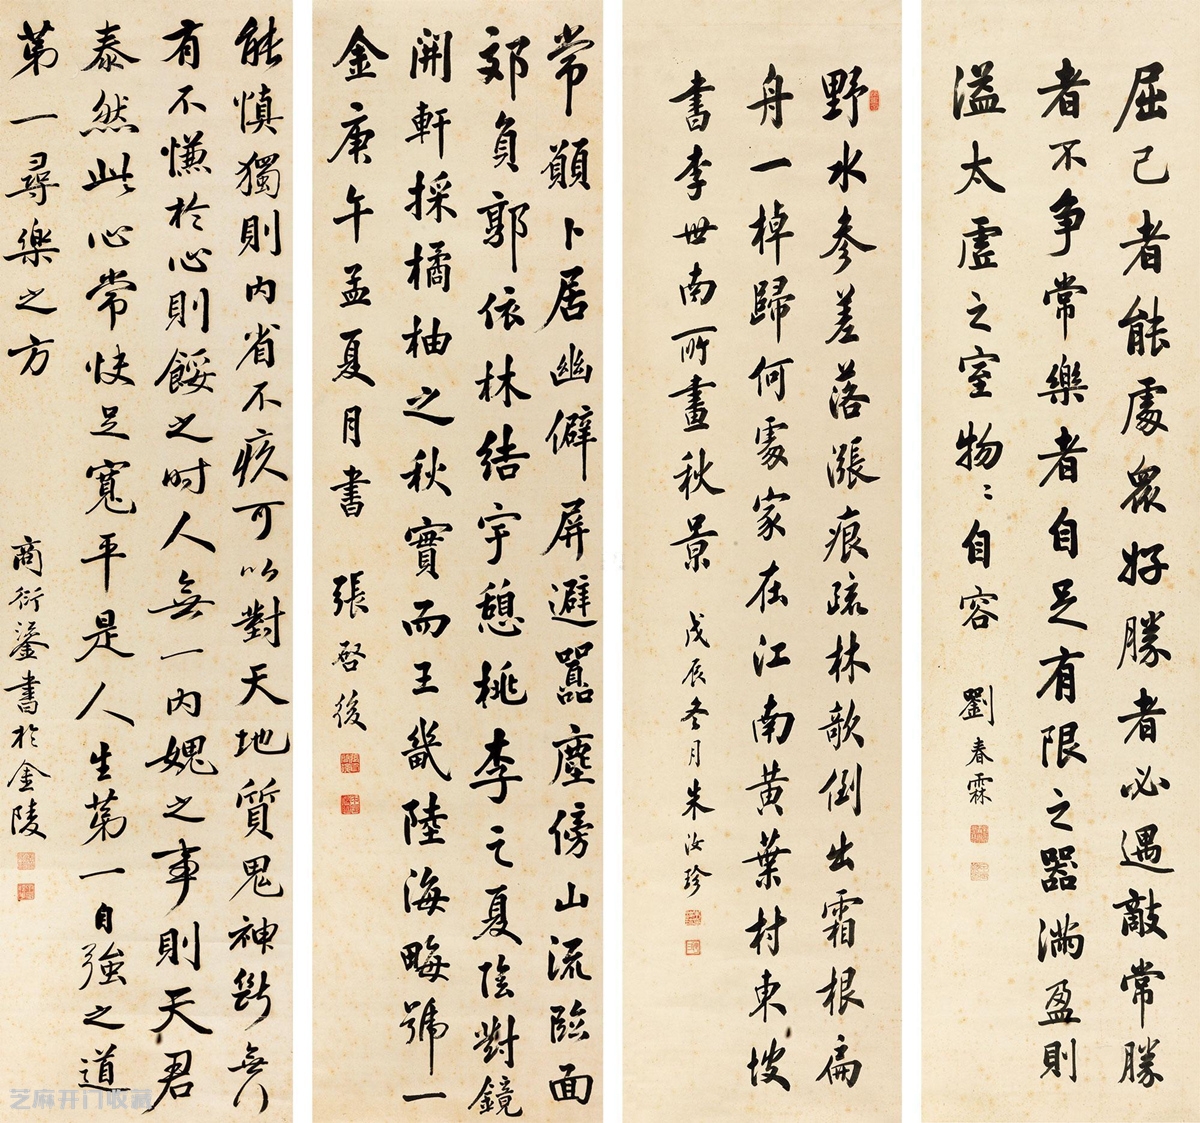 屈己者能處眾好勝者必遇敵常勝
者不争常樂者自足有限之器滿盈則
溢太虛之室物〻自容
劉春霖
野水參差落漲痕疏林欹倒出霜根扁
舟一棹歸何處家在江南黃葉村東坡
書李世南所畫秋景
戊辰冬月朱汝珍
常願卜居幽僻屏避囂塵傍山流臨面
郊負郭依林結宇憩桃李之夏陰對鏡
開軒採橘柚之秋實而王畿陸海畮號一
金庚午孟夏月書
張啓後
能慎獨則内省不疚可以對天地質鬼神斷無行
有不慊於心則餒之時人無一内媿之事則天君
泰然此心常快足寬平是人生第一自強之道
第一尋樂之方
商衍鎏書於金陵
芝麻开门收藏